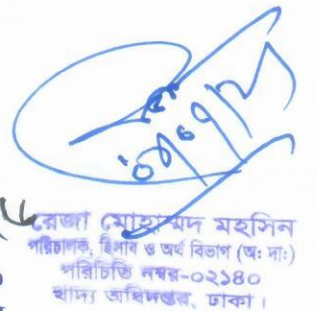 রেজা মোহাম্মদ মহসিন
পরিচালক, হিসাব ও অর্থ বিভাগ (অ: দা:)
পরিচিতি নম্বর-০২১৪০
খাদ্য অধিদপ্তর, ঢাকা।